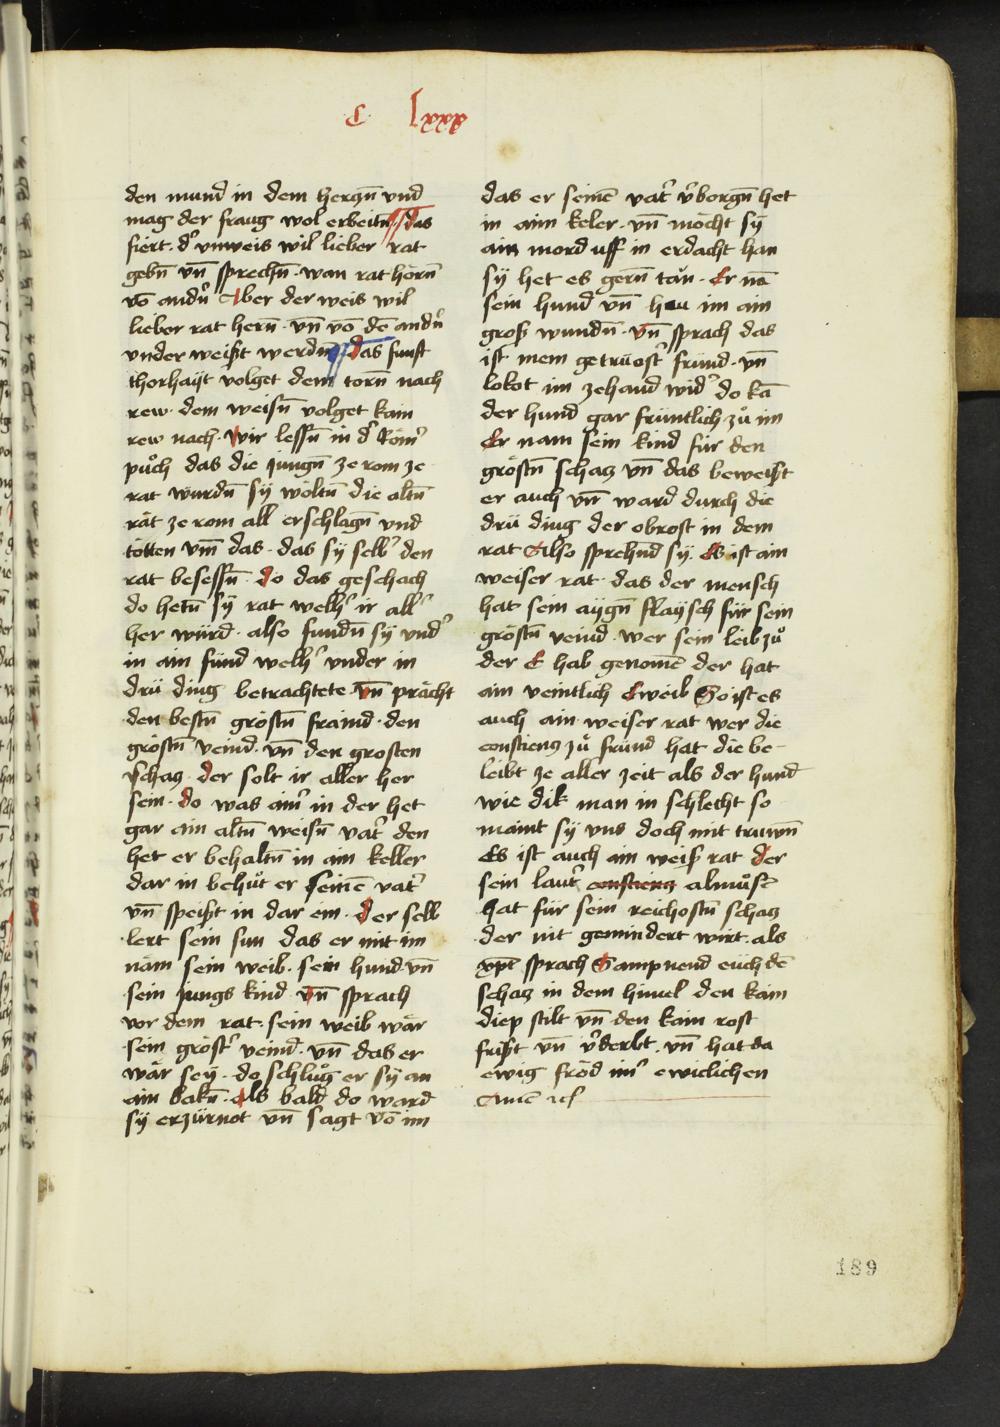 C lxxx
den mund in dem herczn̄ vnd
mag der fraug wol erbeitn̄ das
fiert · d' vnweis wil lieber rat
gebn̄ vn̄ sprechn̄ · wan rat hörn̄
vō andn̄ Aber der weis wil
lieber rat hern̄ · vn̄ vō dē andn̄
vnder weißt werdn̄ das funft
thorhaÿt volget dem torn̄ nach
rew · dem weisn̄ volget kain
rew nach · Wir lessn̄ in d' Röm'
pu̇ch das die jungn̄ ze rom ze
rat wurdn̄ sÿ wöltn̄ die altn̄
rät ze rom all erschlagn̄ vnd
tötten vm̄ das · das sÿ selb' den
rat besessn̄ · do das geschach
do hetn̄ sÿ rat welh' ir all'
her würd · also fundn̄ sÿ vnd'
in ain fünd welh' vnder in
drü ding betrachtete vn̄ prächt
den bestn̄ gröstn̄ fraind · den
gröstn̄ veind · vn̄ den grosten
schacz · der solt ir aller her
sein · do was ain' in der het
gar ain altn̄ weisn̄ vat' den
het er behaltn̄ in ain keller
dar in behu̇t er seinē vat'
vn̄ speißt in dar ein · der selb
lert sein sun das er mit im
näm sein weib · sein hund vn̄
sein jungs kind vn̄ sprach
vor dem rat · sein weib wär
sein gröst' veind · vn̄ das er
wär seÿ · do schlu̇g er sÿ an
ain bakn̄ · als bald do ward
sÿ erzürnot vn̄ sagt vō im
das er seinē vat' v'borgn̄ het
in aim keler · vn̄ möcht sÿ
ain mord uff in erdacht han
sÿ het es gern̄ tän · Er nā
sein hund vn̄ hau im ain
groß wundn̄ · vn̄ sprach das
ist mein getrüost' fründ · vn̄
lokot im zehand wid' do kā
der hund gar früntlich zu̇ im
Er nam sein kind für den
gröstn̄ schacz vn̄ das beweißt
er auch vn̄ ward durch die
drü ding der obrost in dem
rat Also sprehnd sÿ · Es ist ain
weiser rat · das der mensch
hat sein aÿgn̄ flaÿsch für sein
gröstn̄ veind · wer sein leib zu̇
der E hab genomē der hat
ain veintlich Eweib So ist es
auch ain weiser rat wer die
consciencz zu̇ fründ hat die be-
leibt ze aller zeit als der hund
wie dik man in schlecht so
maint sÿ vns doch mit truwn̄
Es ist auch ain weiß rat der
sein laut' consciencz almu̇sē
hat für sein reichostn̄ schacz
der nit gemindert wirt · als
xp̄c sprach Sampnend eüch dē
schacz in dem himel den kain
diep stilt vn̄ den kain rost
frißt vn̄ v'derbt · vn̄ hat da
ewig fröd im' ewiclichen
Amē
189